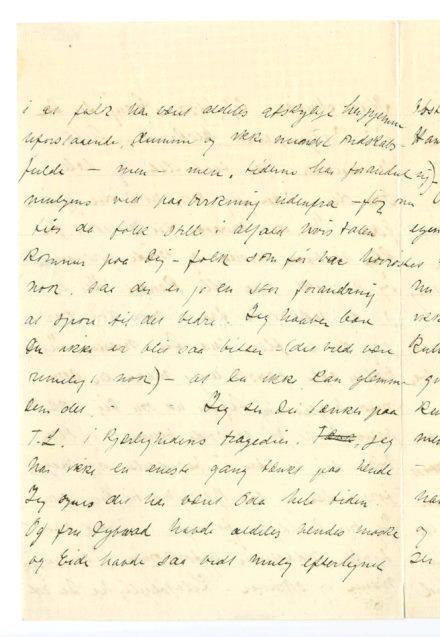 i at folk har været aldeles afskylige herhjemme
uforstaaende, dumme og ikke mindst ondskabs-
fulde – men – men, tiderne har forandret sig –
muligens ved paavirkning udenfra – for nu
ties da folk stille i alfald hvis talen
kommer paa Dig – folk som før var
nok. saa der er jo en stor forandring
at spore til det bedre. Jeg haaber bare
Du ikke er blit saa bitter – (det vilde være
rimeligt nok) – at Du ikke kan glemme
dem det. Jeg ser Du tænker paa
T. L. i Kjærlighedens tragedie. Jeg
har ikke en eneste gang tænkt paa hende
Jeg synes det har været Oda hele tiden.
Og fru Dybwad havde aldeles hendes maske
og Eide havde saa vidt mulig efterlignet